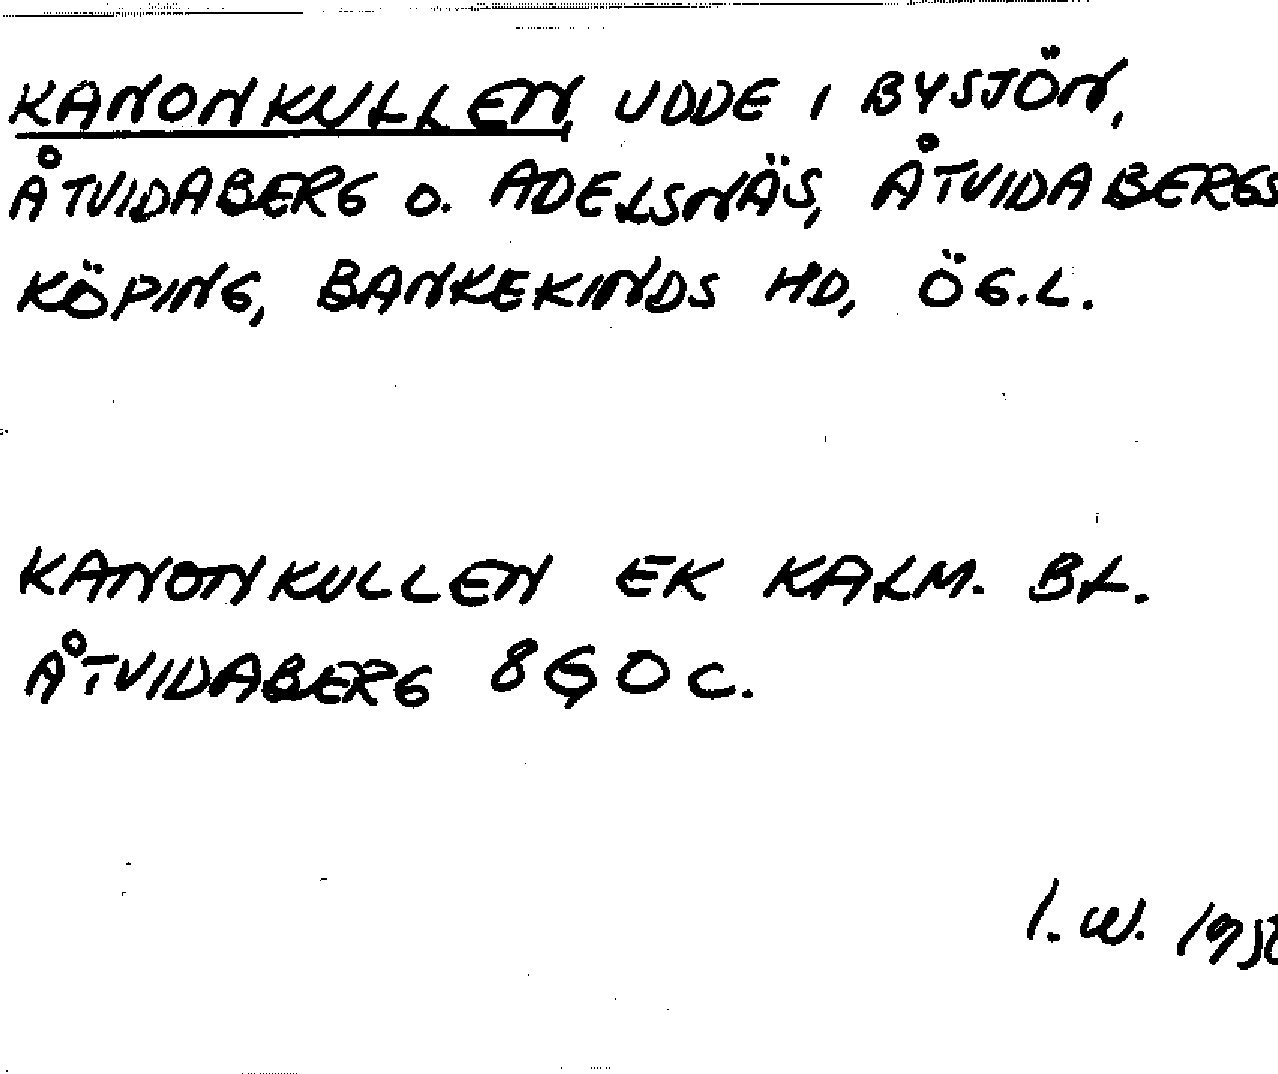 KANONKULLEN, UDDE I BYSJÖN,
ÅTVIDABERG O. ADELSNÄS, ÅTVIDABERGS
KÖPING, BANKEKINDS HD, ÖG.L.
KANONKULLEN EK KALM. BL.
ÅTVIDABERG 8GO C.
I.W.